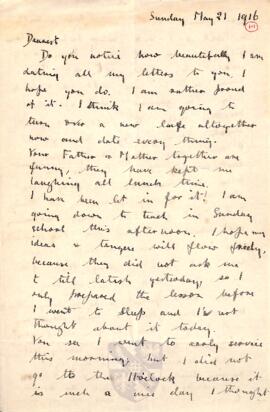 Sunday May 21 1916
Dearest
Do you notice how beautifully I am
dating all my letters to you. I
hope you do. I am rather proud
of it. I think I am going to
turn over a new leaf altogether
now and date every thing.
Your Father & Mother together are
funny, they have kept me
laughing all lunch time.
I have been let in for it! I am
going down to teach in Sunday
school this afternoon. I hope my
ideas & tongue will flow freely,
because they did not ask me
till latish yesterday, so I
only prepared the lesson before
I went to sleep and I've not
thought about it today.
You see I went to early service
this morning, but I did not
go to the 11 o'clock because it
is such a nice day I thought